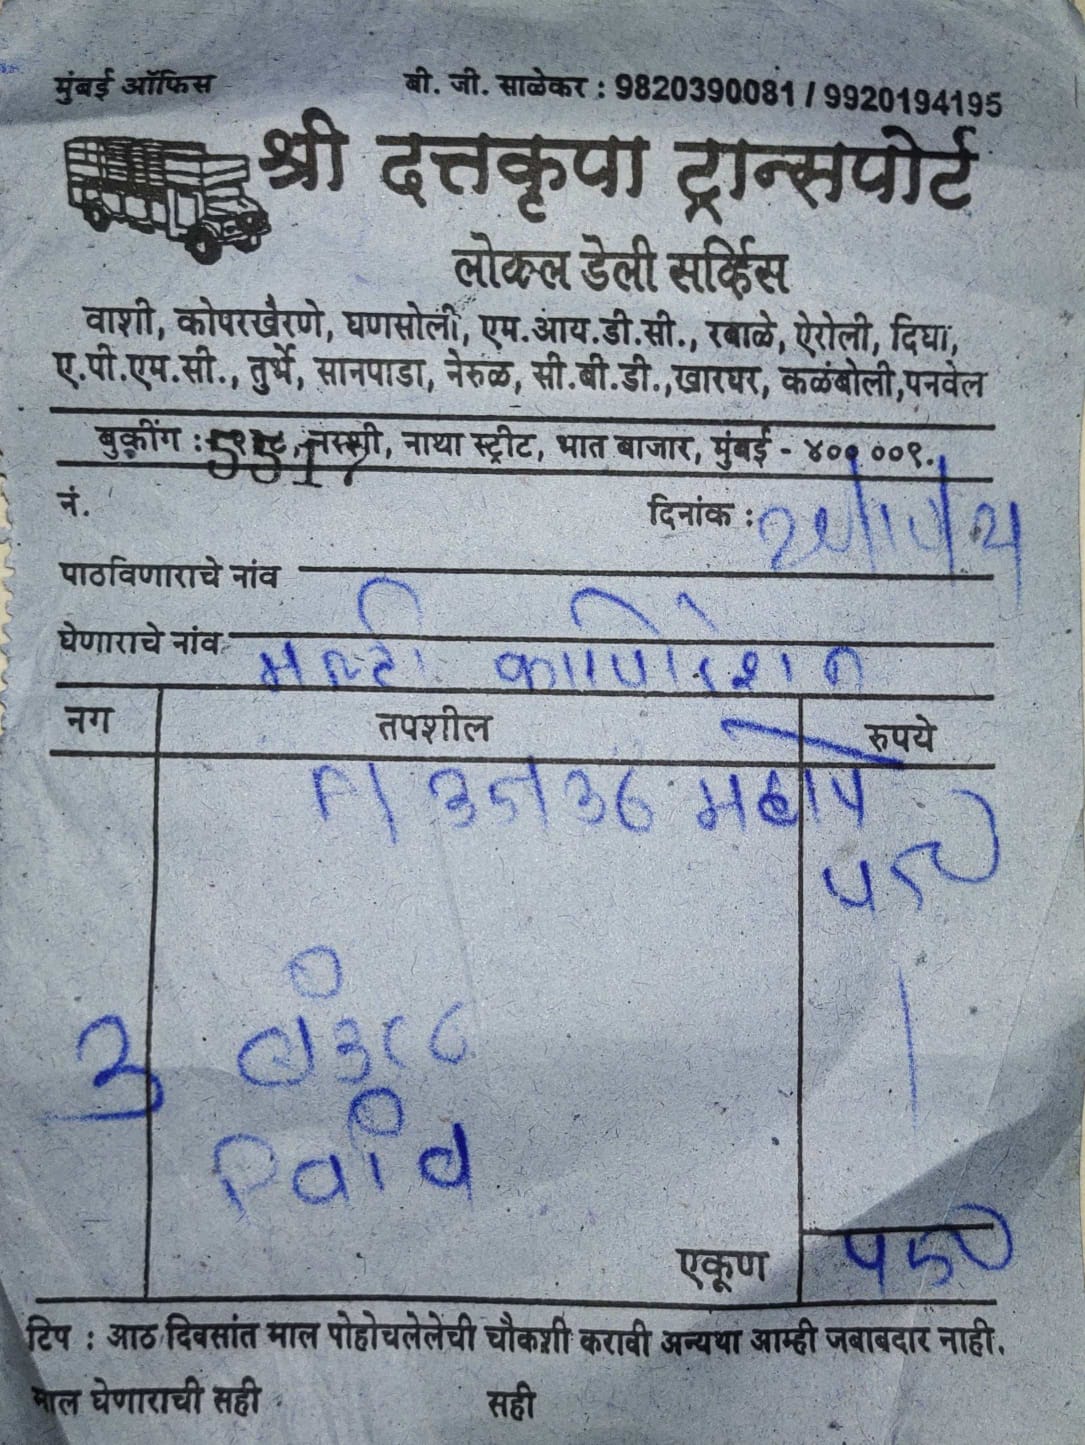 मुंबई ऑफिस बी. जी. साळेकर : 9820390081 / 9920194195
श्री दत्तकृपा ट्रान्सपोर्ट
लोकल डेली सर्व्हिस
वाशी, कोपरखैरणे, घणसोली, एम.आय.डी.सी., रबाळे, ऐरोली, दिघा,
ए.पी.एम.सी., तुर्भे, सानपाडा, नेरुळ, सी.बी.डी.,खारघर, कळंबोली,पनवेल
बुकींग : नरसी, नाथा स्ट्रीट, भात बाजार, मुंबई - ४०० ००९.
5517
नं. दिनांक :
पाठविणाराचे नांव
घेणाराचे नांव
नग तपशील रुपये
35/36 महापे
3 बंडल
Paid
एकूण
टिप : आठ दिवसांत माल पोहोचलेलेची चौकशी करावी अन्यथा आम्ही जबाबदार नाही.
माल घेणाराची सही सही